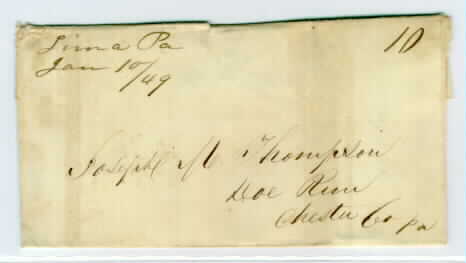 Lima Pa
Jan 10/49
10
Joseph M Thompson
Doe Run
Chester Co Pa